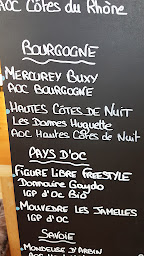 AOC Côtes du Rhône
BOURGOGNE
MERCUREY BUXY
AOC BOURGOGNE
HAUTES CÔTES DE NUIT
Les Dames Huguette
AOC Hautes Côtes de Nuit
PAYS D'OC
FIGURE LIBRE FREESTYLE
Dommaire Gayda
IGP d'OC Bio
MOUVEDRE LES JAMELLES
IGP d'OC
SAVOIE
MONDEUSE D'ARBIN